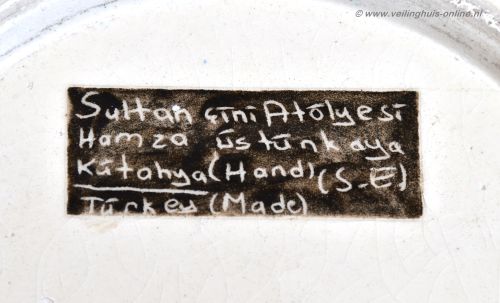 © www.veilinghuis-online.nl
Sultan çini Atölyesi
Hamza üstünkaya
Kütahya (Hand) (S-E)
Türkey (Made)